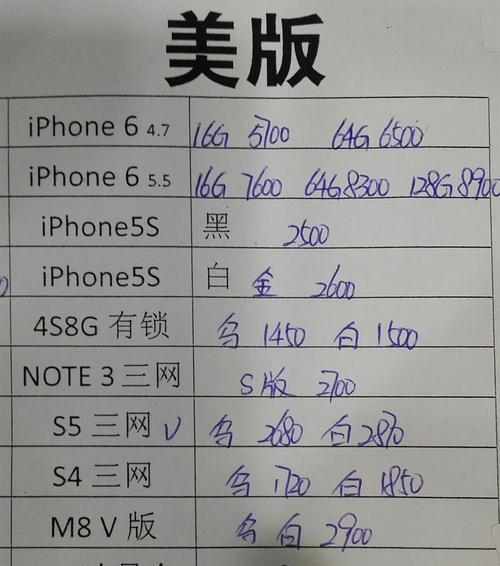 美版
iPhone 6 4.7 16G 5700 64G 6500
iPhone 6 5.5 16G 7600 64G 8300 128G 8900
iPhone5S 黑 2500
iPhone5S 白 金 2600
4S8G 有锁 乌 1450 白 1500
NOTE 3 三网 S版 2700
S5 三网 V 乌 2680 白 2870
S4 三网 乌 1720 白 1850
M8 V 版 乌 白 2900